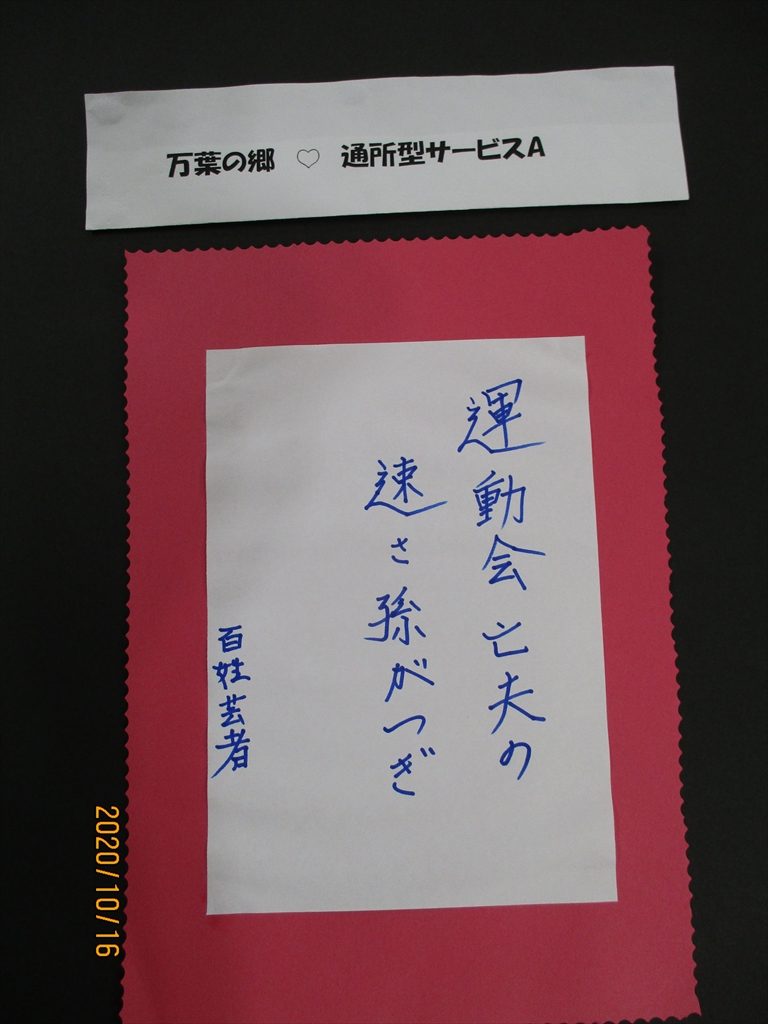 万葉の郷 ♡ 通所型サービスA
運動会亡夫の
速さ孫がつぎ
百姓芸者
2020/10/16